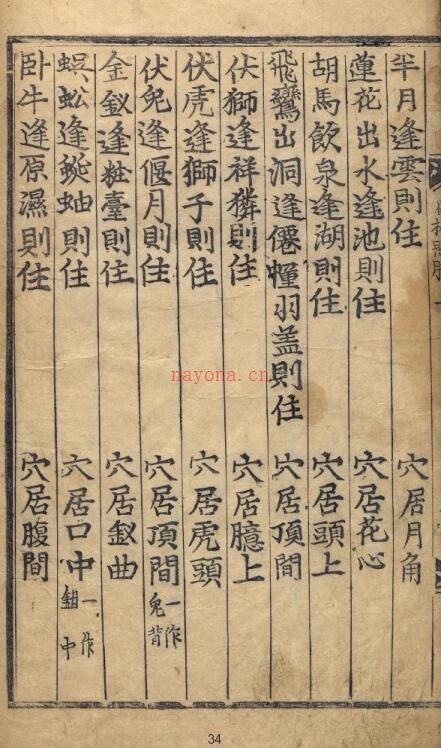 半月逢雲則住 穴居月角
蓮花出水逢池則住 穴居花心
胡馬飲泉逢湖則住 穴居頭上
飛鸞出洞逢僊幢羽盖則住 穴居頂間
伏獅逢祥獜則住 穴居臆上
伏虎逢獅子則住 穴居虎頭
伏兔逢偃月則住 穴居頂間 一作兔背
金釵逢粧臺則住 穴居釵曲
蜈蚣逢蜿蚰則住 穴居口中 一作鉗中
卧牛逢原濕則住 穴居腹間
nayona.cn
34